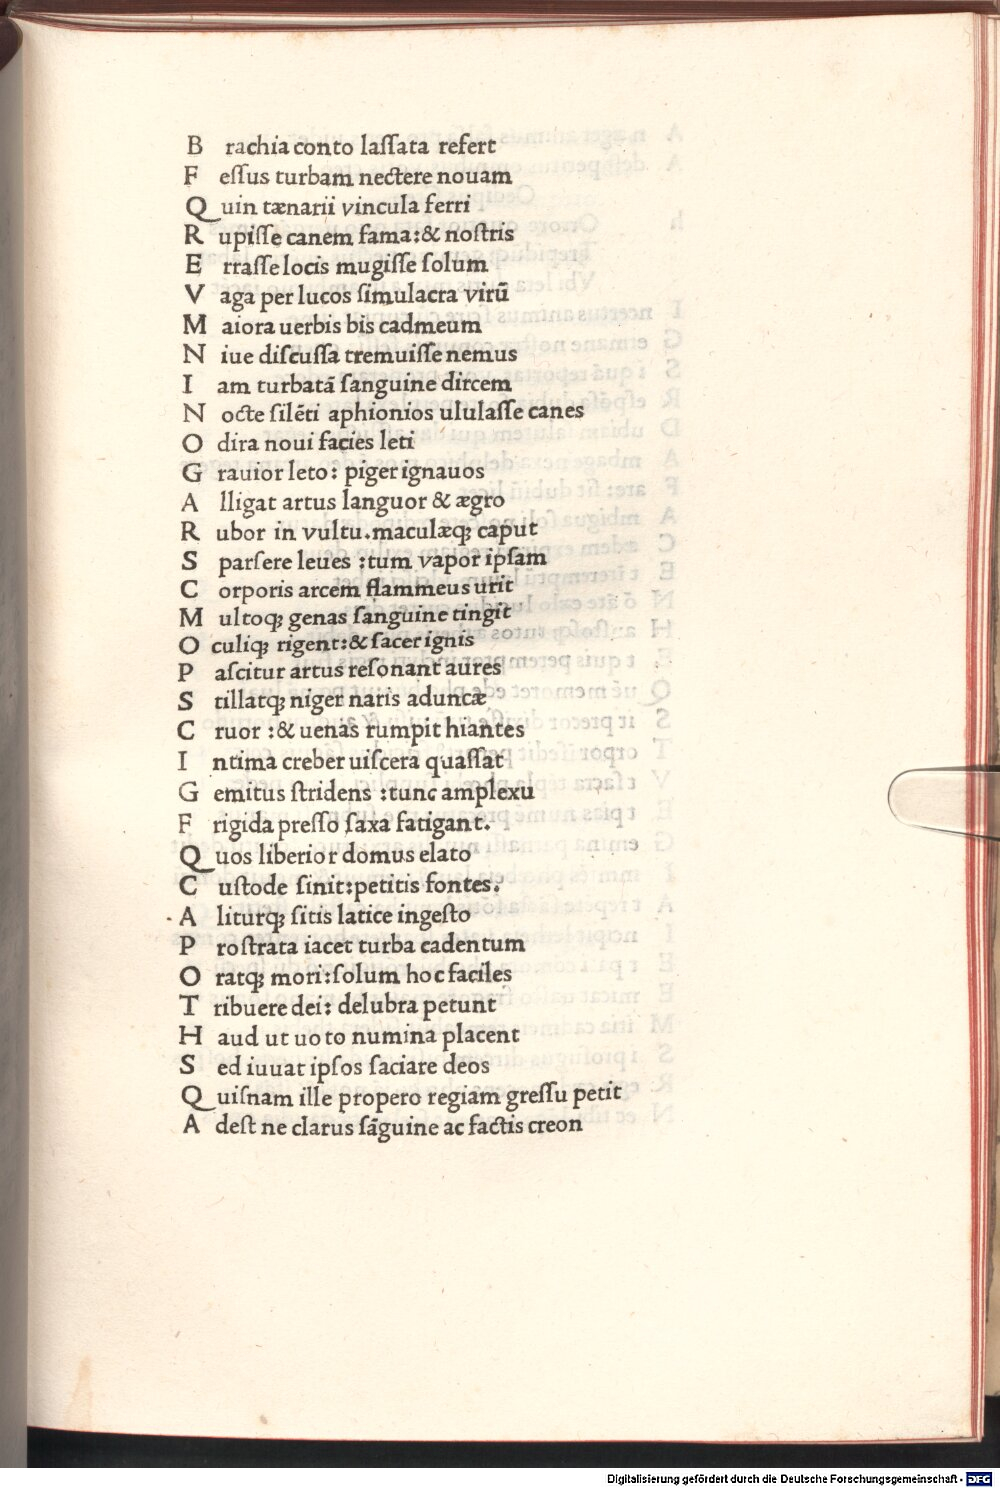 B rachia conto laſſata refert
F eſſus turbam nectere nouam
Q uin tænarii vincula ferri
R upiſſe canem fama:& noſtris
E rraſſe locis mugiſſe ſolum
V aga per lucos ſimulacra virū
M aiora uerbis bis cadmeum
N iue diſcuſſa tremuiſſe nemus
I am turbatā ſanguine dircem
N octe ſilēti aphionios ululaſſe canes
O dira noui facies leti
G rauior leto: piger ignauos
A lligat artus languor & ægro
R ubor in vultu.maculæqꝫ caput
S parſere leues :tum vapor ipſam
C orporis arcem flammeus urit
M ultoqꝫ genas ſanguine tingit
O culiqꝫ rigent:& ſacer ignis
P aſcitur artus reſonant aures
S tillatqꝫ niger naris aduncæ
C ruor :& uenas rumpit hiantes
I ntima creber uiſcera quaſſat
G emitus ſtridens :tunc amplexu
F rigida preſſo ſaxa fatigant.
Q uos liberior domus elato
C uſtode ſinit:petitis fontes.
A liturqꝫ ſitis latice ingeſto
P roſtrata iacet turba cadentum
O ratqꝫ mori:ſolum hoc faciles
T ribuere dei: delubra petunt
H aud ut uoto numina placent
S ed iuuat ipſos ſaciare deos
Q uiſnam ille propero regiam greſſu petit
A deſt ne clarus ſāguine ac factis creon
Digitalisierung gefördert durch die Deutsche Forschungsgemeinschaft - DFG